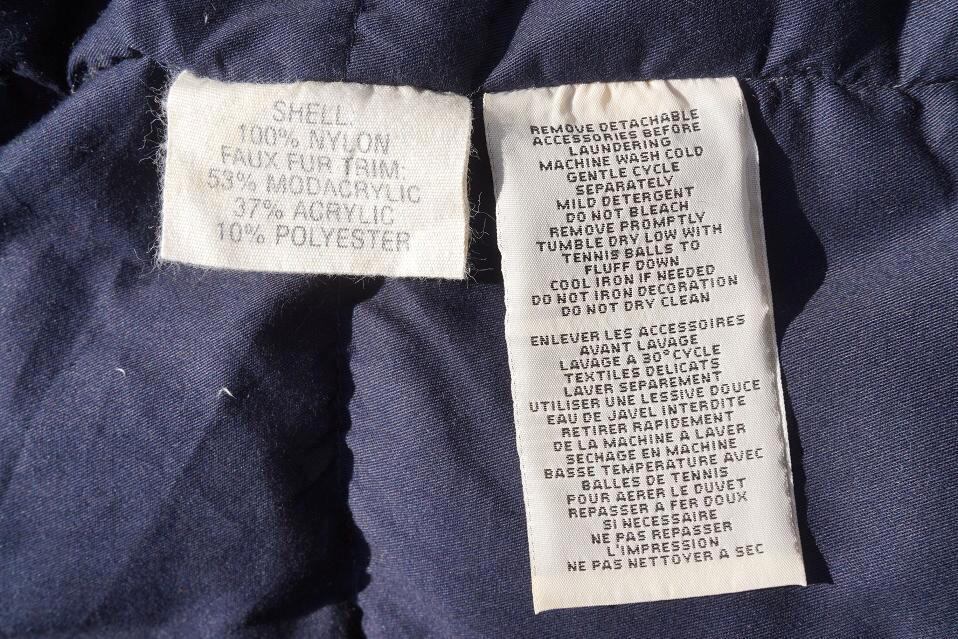 SHELL:
100% NYLON
FAUX FUR TRIM:
53% MODACRYLIC
37% ACRYLIC
10% POLYESTER
REMOVE DETACHABLE
ACCESSORIES BEFORE
LAUNDERING
MACHINE WASH COLD
GENTLE CYCLE
SEPARATELY
MILD DETERGENT
DO NOT BLEACH
REMOVE PROMPTLY
TUMBLE DRY LOW WITH
TENNIS BALLS TO
FLUFF DOWN
COOL IRON IF NEEDED
DO NOT IRON DECORATION
DO NOT DRY CLEAN
ENLEVER LES ACCESSOIRES
AVANT LAVAGE
LAVAGE A 30° CYCLE
TEXTILES DELICATS
LAVER SEPAREMENT
UTILISER UNE LESSIVE DOUCE
EAU DE JAVEL INTERDITE
RETIRER RAPIDEMENT
DE LA MACHINE A LAVER
SECHAGE EN MACHINE
BASSE TEMPERATURE AVEC
BALLES DE TENNIS
POUR AERER LE DUVET
REPASSER A FER DOUX
SI NECESSAIRE
NE PAS REPASSER
L'IMPRESSION
NE PAS NETTOYER A SEC